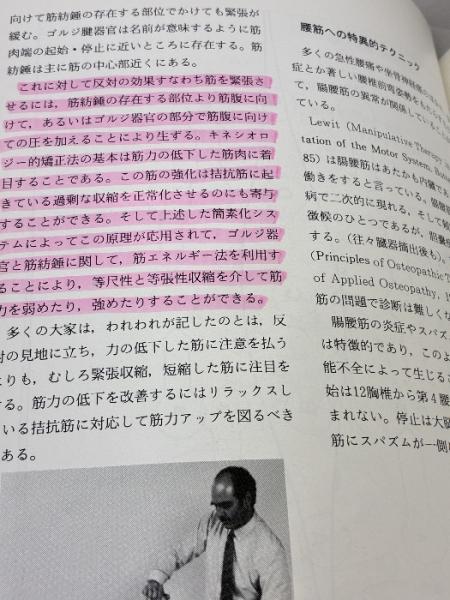 向けて筋紡錘の存在する部位でかけても緊張が
緩む。ゴルジ腱器官は名前が意味するように筋
肉端の起始・停止に近いところに存在する。筋
紡錘は主に筋の中心部近くにある。
これに対して反対の効果すなわち筋を緊張さ
せるには，筋紡錘の存在する部位より筋腹に向
けて，あるいはゴルジ器官の部分で筋腹に向け
ての圧を加えることにより生ずる。キネシオロ
ジー的矯正法の基本は筋力の低下した筋肉に着
目することである。この筋の強化は拮抗筋に起
きている過剰な収縮を正常化させるのにも寄与
することができる。そして上述した簡素化シス
テムによってこの原理が応用されて，ゴルジ器
官と筋紡錘に関して，筋エネルギー法を利用す
ることにより，等尺性と等張性収縮を介して筋
力を弱めたり，強めたりすることができる。
多くの大家は，われわれが記したのとは，反
対の見地に立ち，力の低下した筋に注意を払う
よりも，むしろ緊張収縮，短縮した筋に注目を
する。筋力の低下を改善するにはリラックスし
ている拮抗筋に対応して筋力アップを図るべき
である。
腰筋への特異的テクニック
多くの急性腰痛や坐骨神経痛
症とか著しい腰椎前弯姿勢をもたら
て，腸腰筋の異常が関係している
ている。
Lewit (Manipulative Therapy
tation of the Motor System, Butte
85) は腸腰筋はあたかも内臓で
働きをすると言っている。腸腰
病で二次的に現れる，そして
徴候のひとつであるが，胆嚢
する。（往々臓器摘出後も）。
(Principles of Osteopathic T
of Applied Osteopathy, 19
筋の問題で診断は難しくな
腸腰筋の炎症やスパズ
は特徴的であり，このよ
能不全によって生じるさ
始は12胸椎から第４腰
まれない。停止は大腿
筋にスパズムが一側